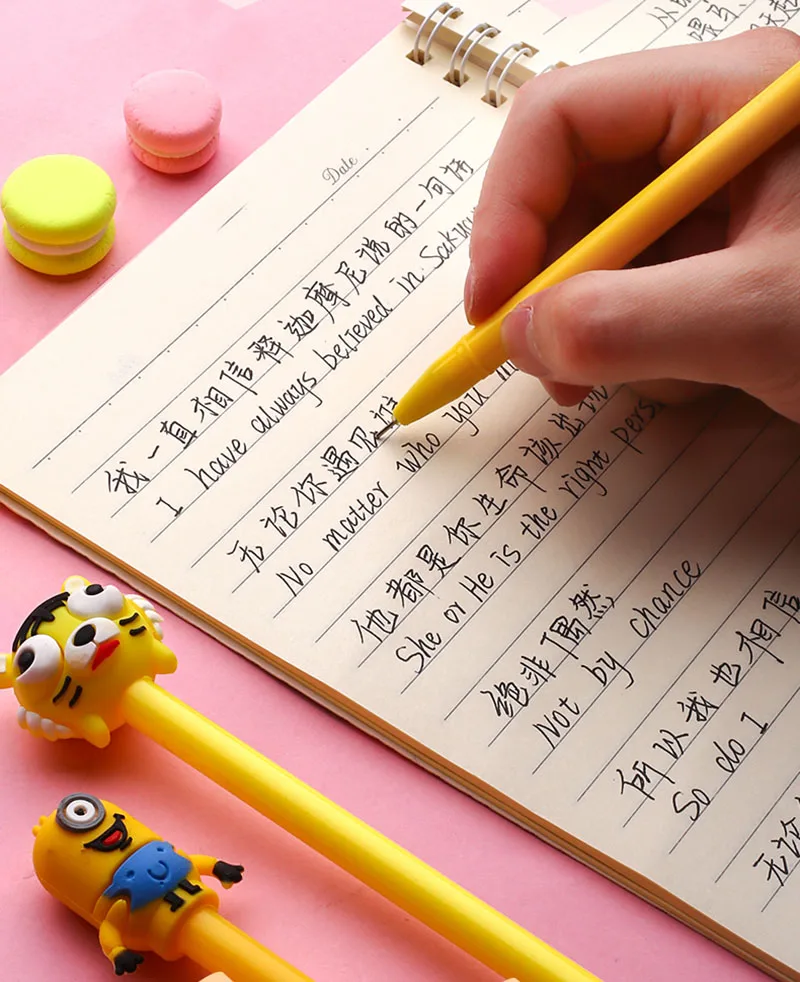 Date
我一直相信释迦摩尼说的一句话
I have always believed in
无论你遇见
No matter who you
他都是你生命该出现
She or He is the right
绝非偶然
Not by chance
所以我也相信
So do I
无论